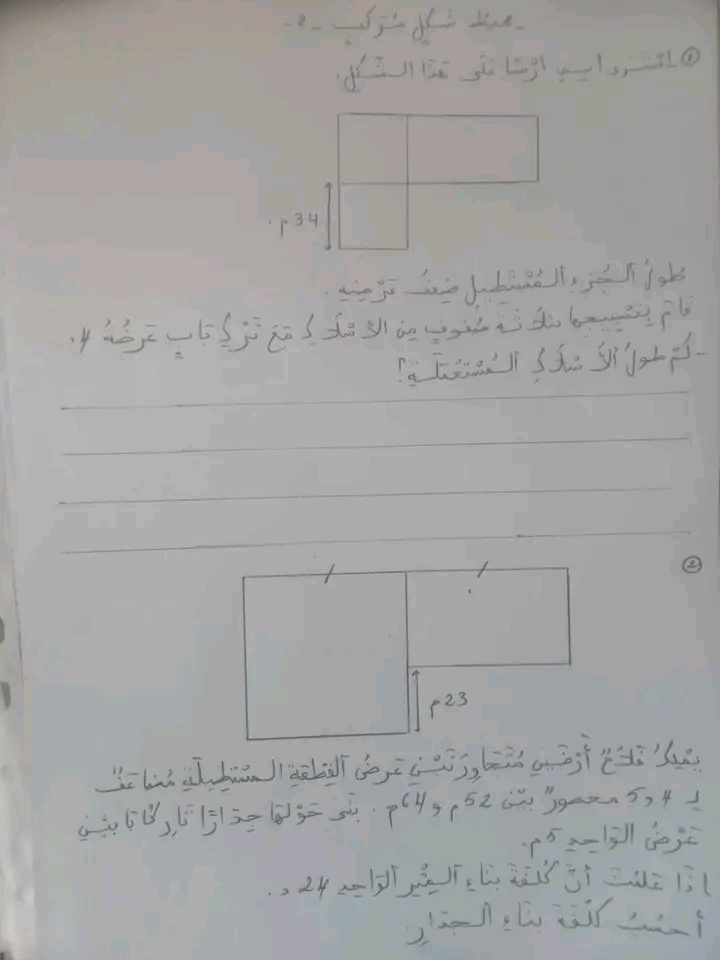 - محيط شكل مركب - 2 -
① اشترى ابي أرضا على هذا الشكل.
34 م
طول الجزء المستطيل ضعف عرضه.
قام بتسييجها بثلاثة صفوف من الأسلاك مع ترك باب عرضه 4.
- كم طول الأسلاك المستعملة؟
②
23 م
يملك فلاح أرضين متجاورتين عرض القطعة المستطيلة مضاعف
لـ 4 و 5 محصور بين 52 م و 64 م. بنى حولها جدارا تاركا بابين
عرض الواحد 5 م.
إذا علمت أن كلفة بناء المتر الواحد 24 د.
أحسب كلفة بناء الجدار.